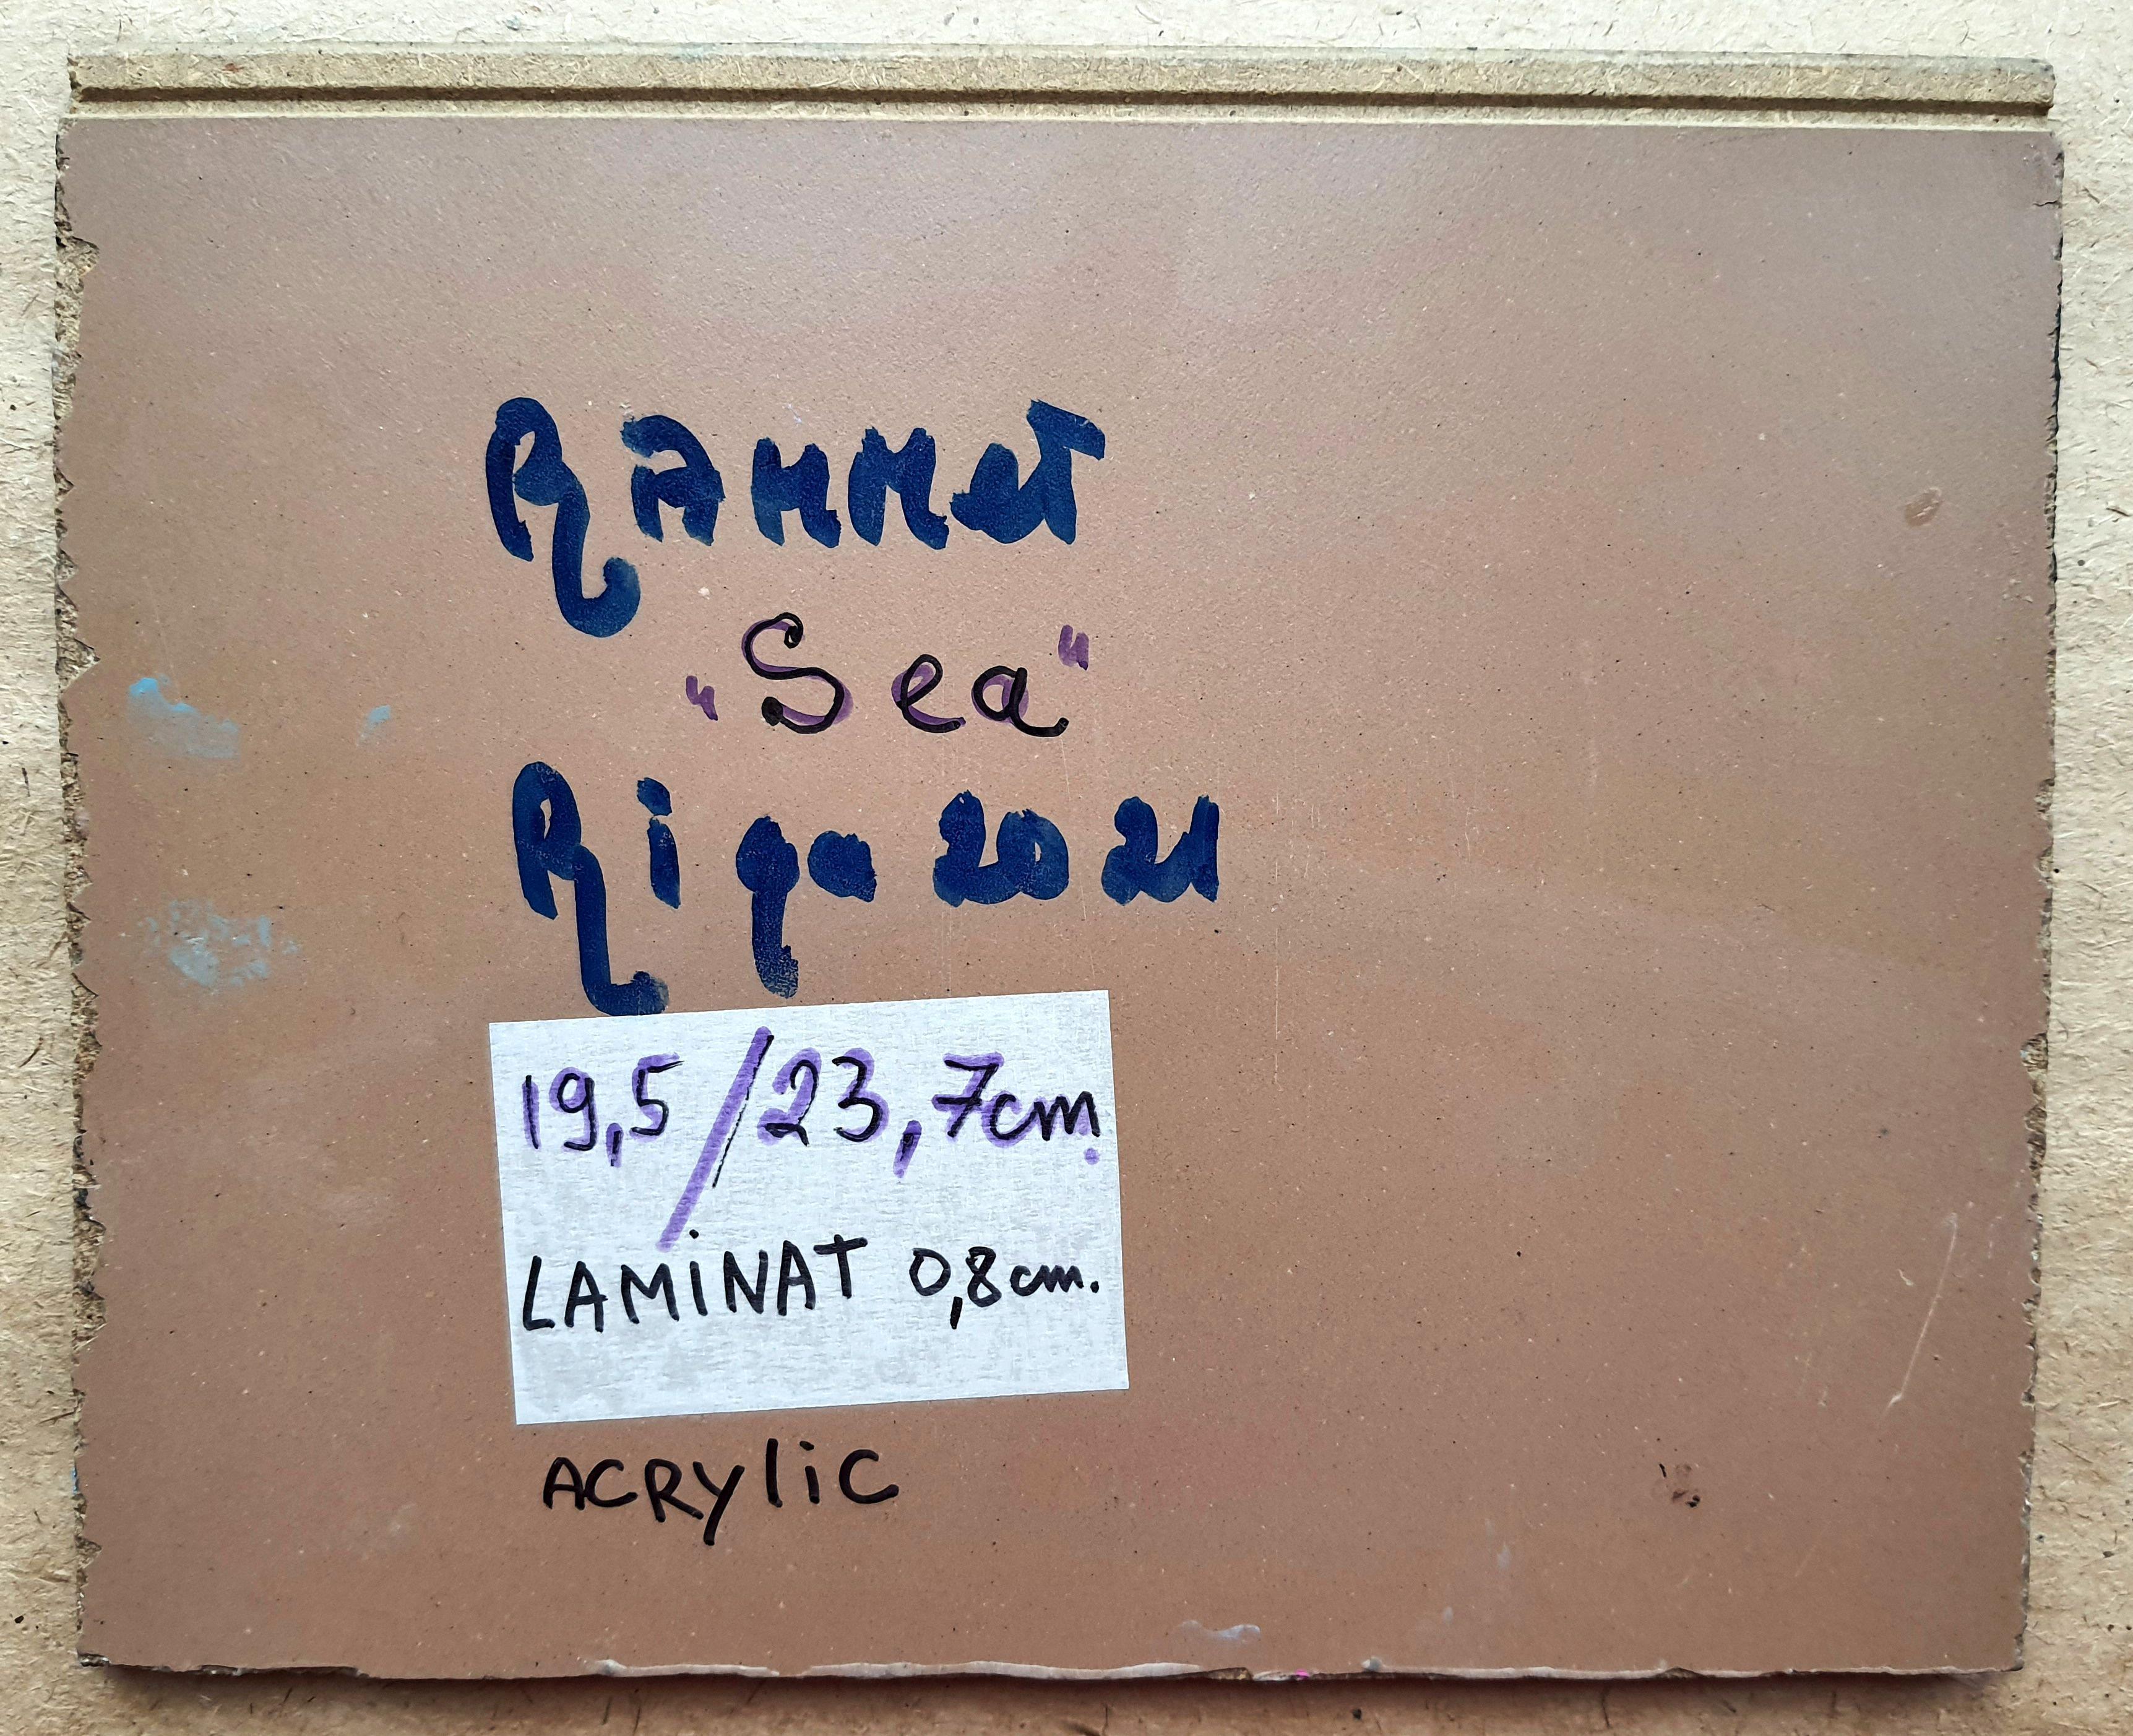 "Sea"
Riga 2021
19,5/23,7cm.
LAMINAT 0,8cm.
ACRYlic